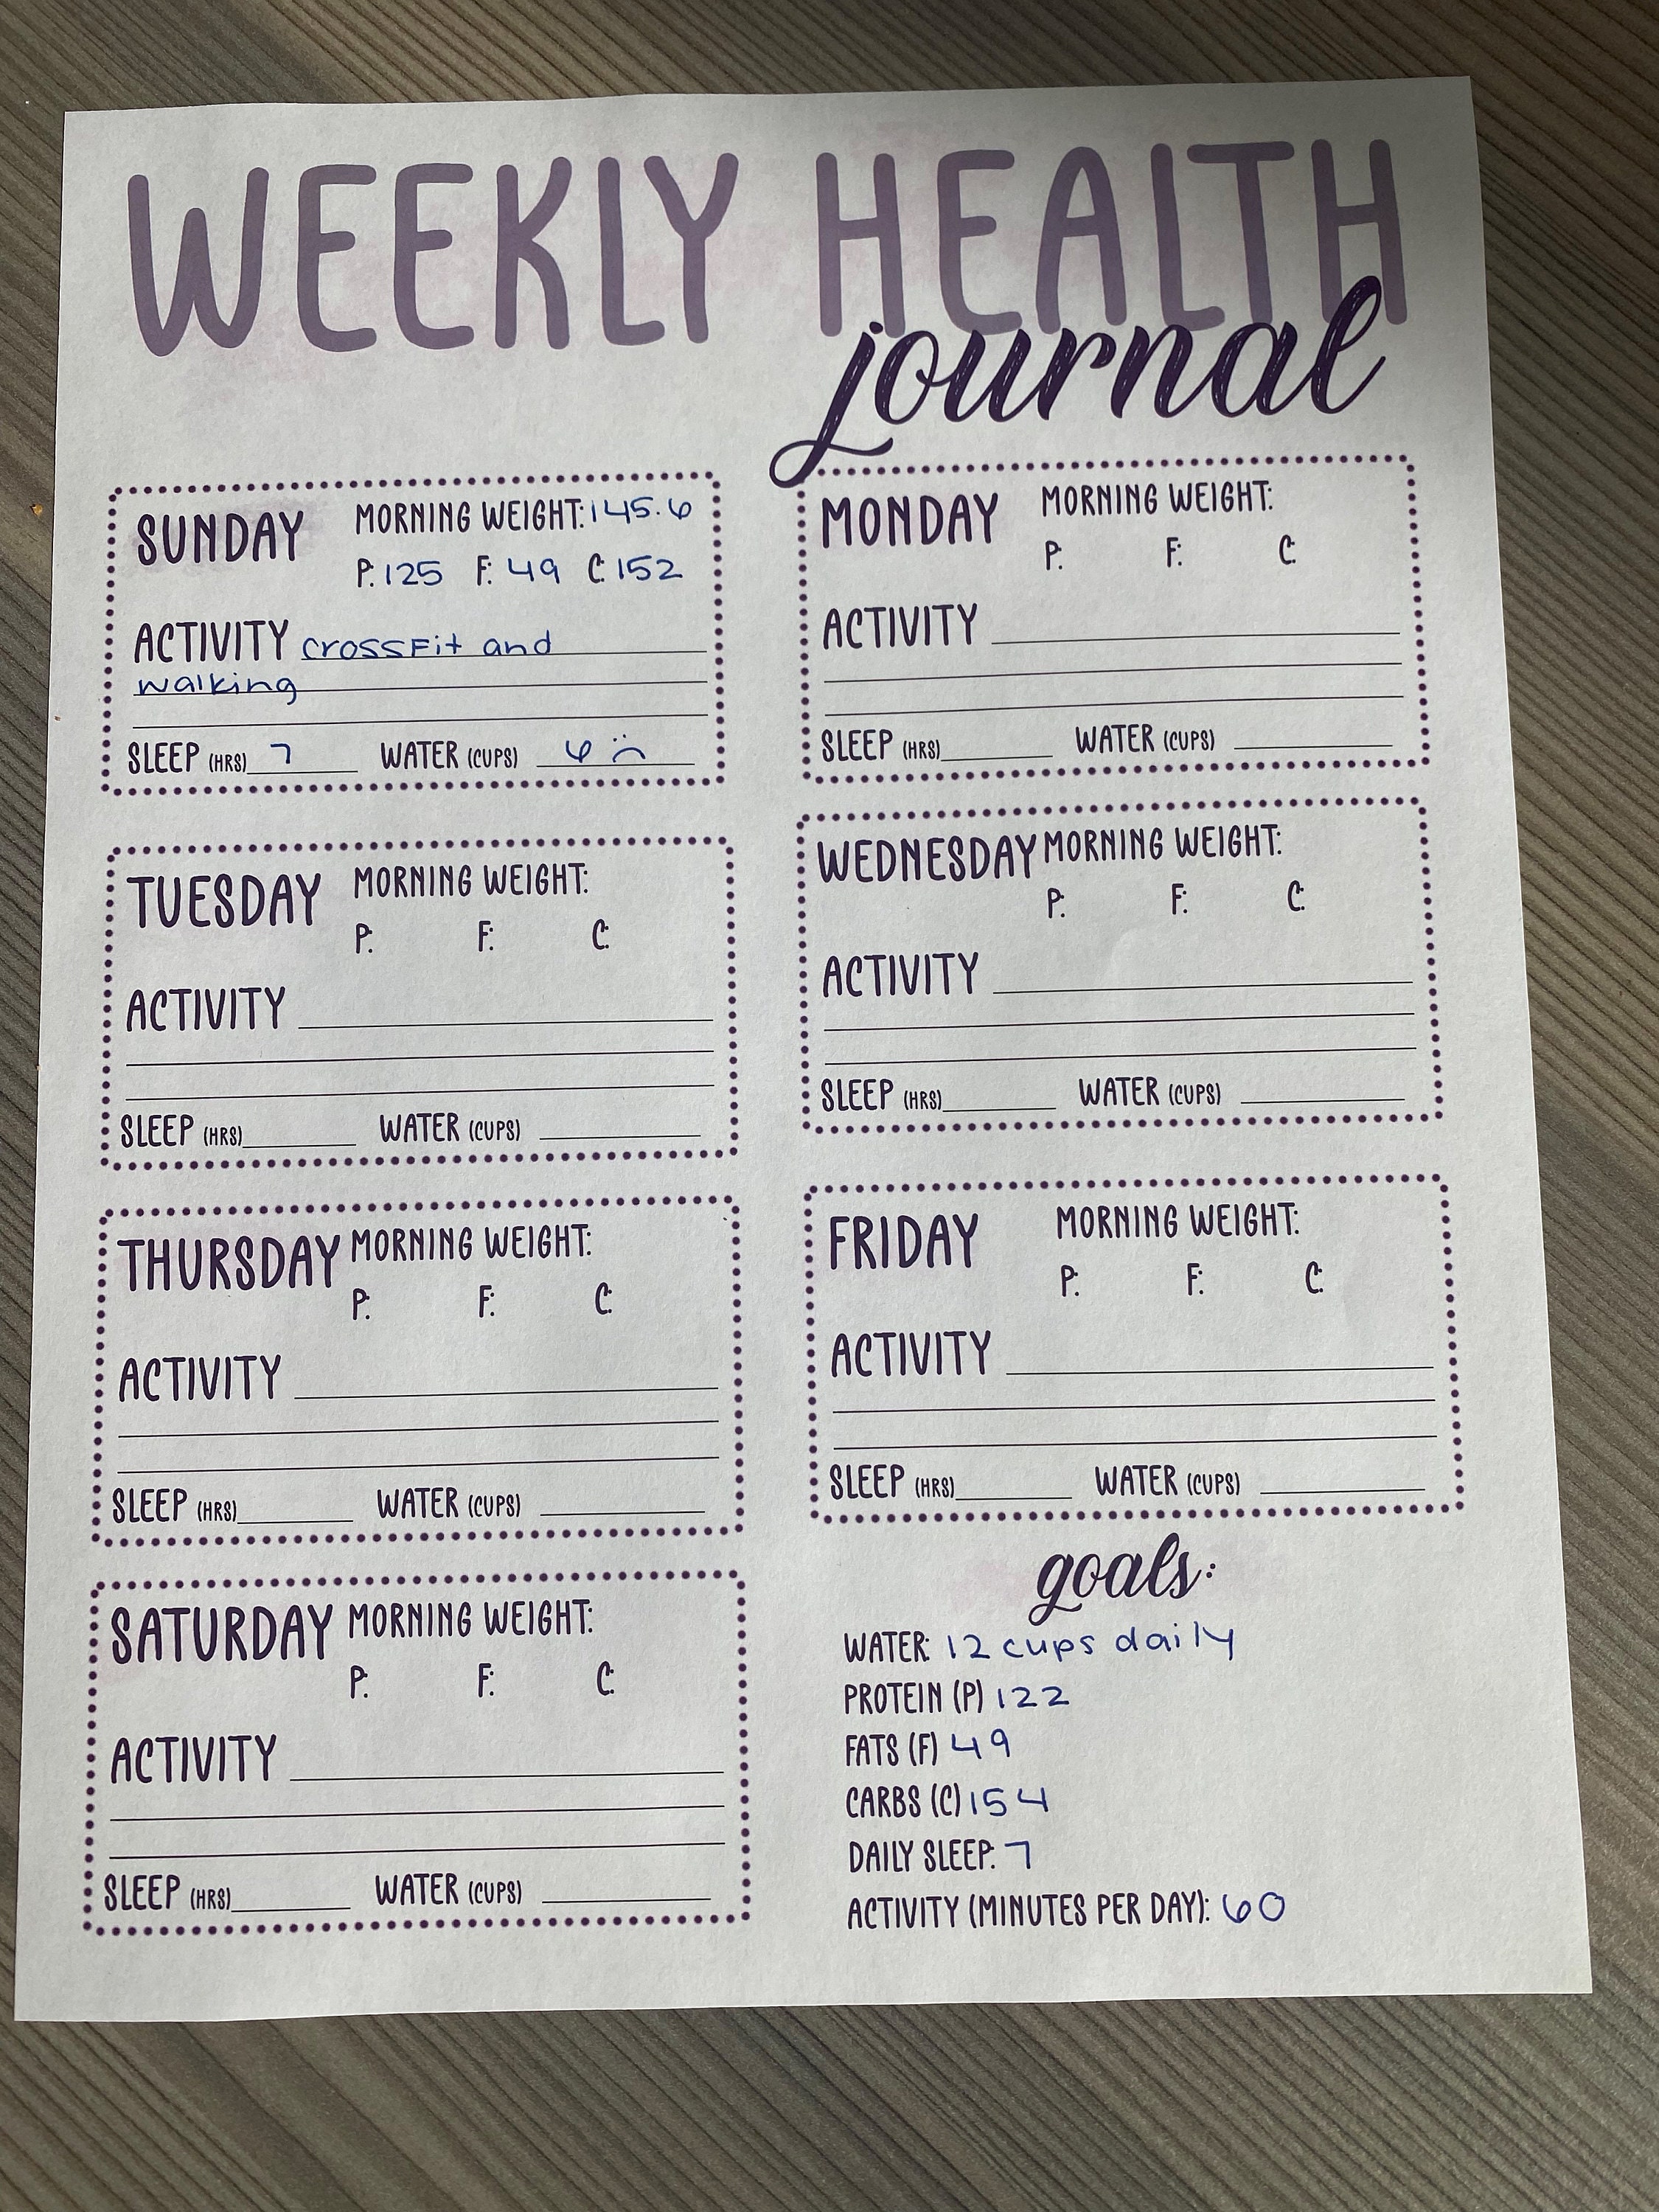 WEEKLY HEALTH
journal
SUNDAY MORNING WEIGHT: 145.6
P: 125 F: 49 C: 152
ACTIVITY crossFit and
walking
SLEEP (HRS) 7 WATER (CUPS) 6 :(
MONDAY MORNING WEIGHT:
P: F: C:
ACTIVITY
SLEEP (HRS) WATER (CUPS)
TUESDAY MORNING WEIGHT:
P: F: C:
ACTIVITY
SLEEP (HRS) WATER (CUPS)
WEDNESDAY MORNING WEIGHT:
P: F: C:
ACTIVITY
SLEEP (HRS) WATER (CUPS)
THURSDAY MORNING WEIGHT:
P: F: C:
ACTIVITY
SLEEP (HRS) WATER (CUPS)
FRIDAY MORNING WEIGHT:
P: F: C:
ACTIVITY
SLEEP (HRS) WATER (CUPS)
SATURDAY MORNING WEIGHT:
P: F: C:
ACTIVITY
SLEEP (HRS) WATER (CUPS)
goals:
WATER: 12 cups daily
PROTEIN (P) 122
FATS (F) 49
CARBS (C) 154
DAILY SLEEP: 7
ACTIVITY (MINUTES PER DAY): 60